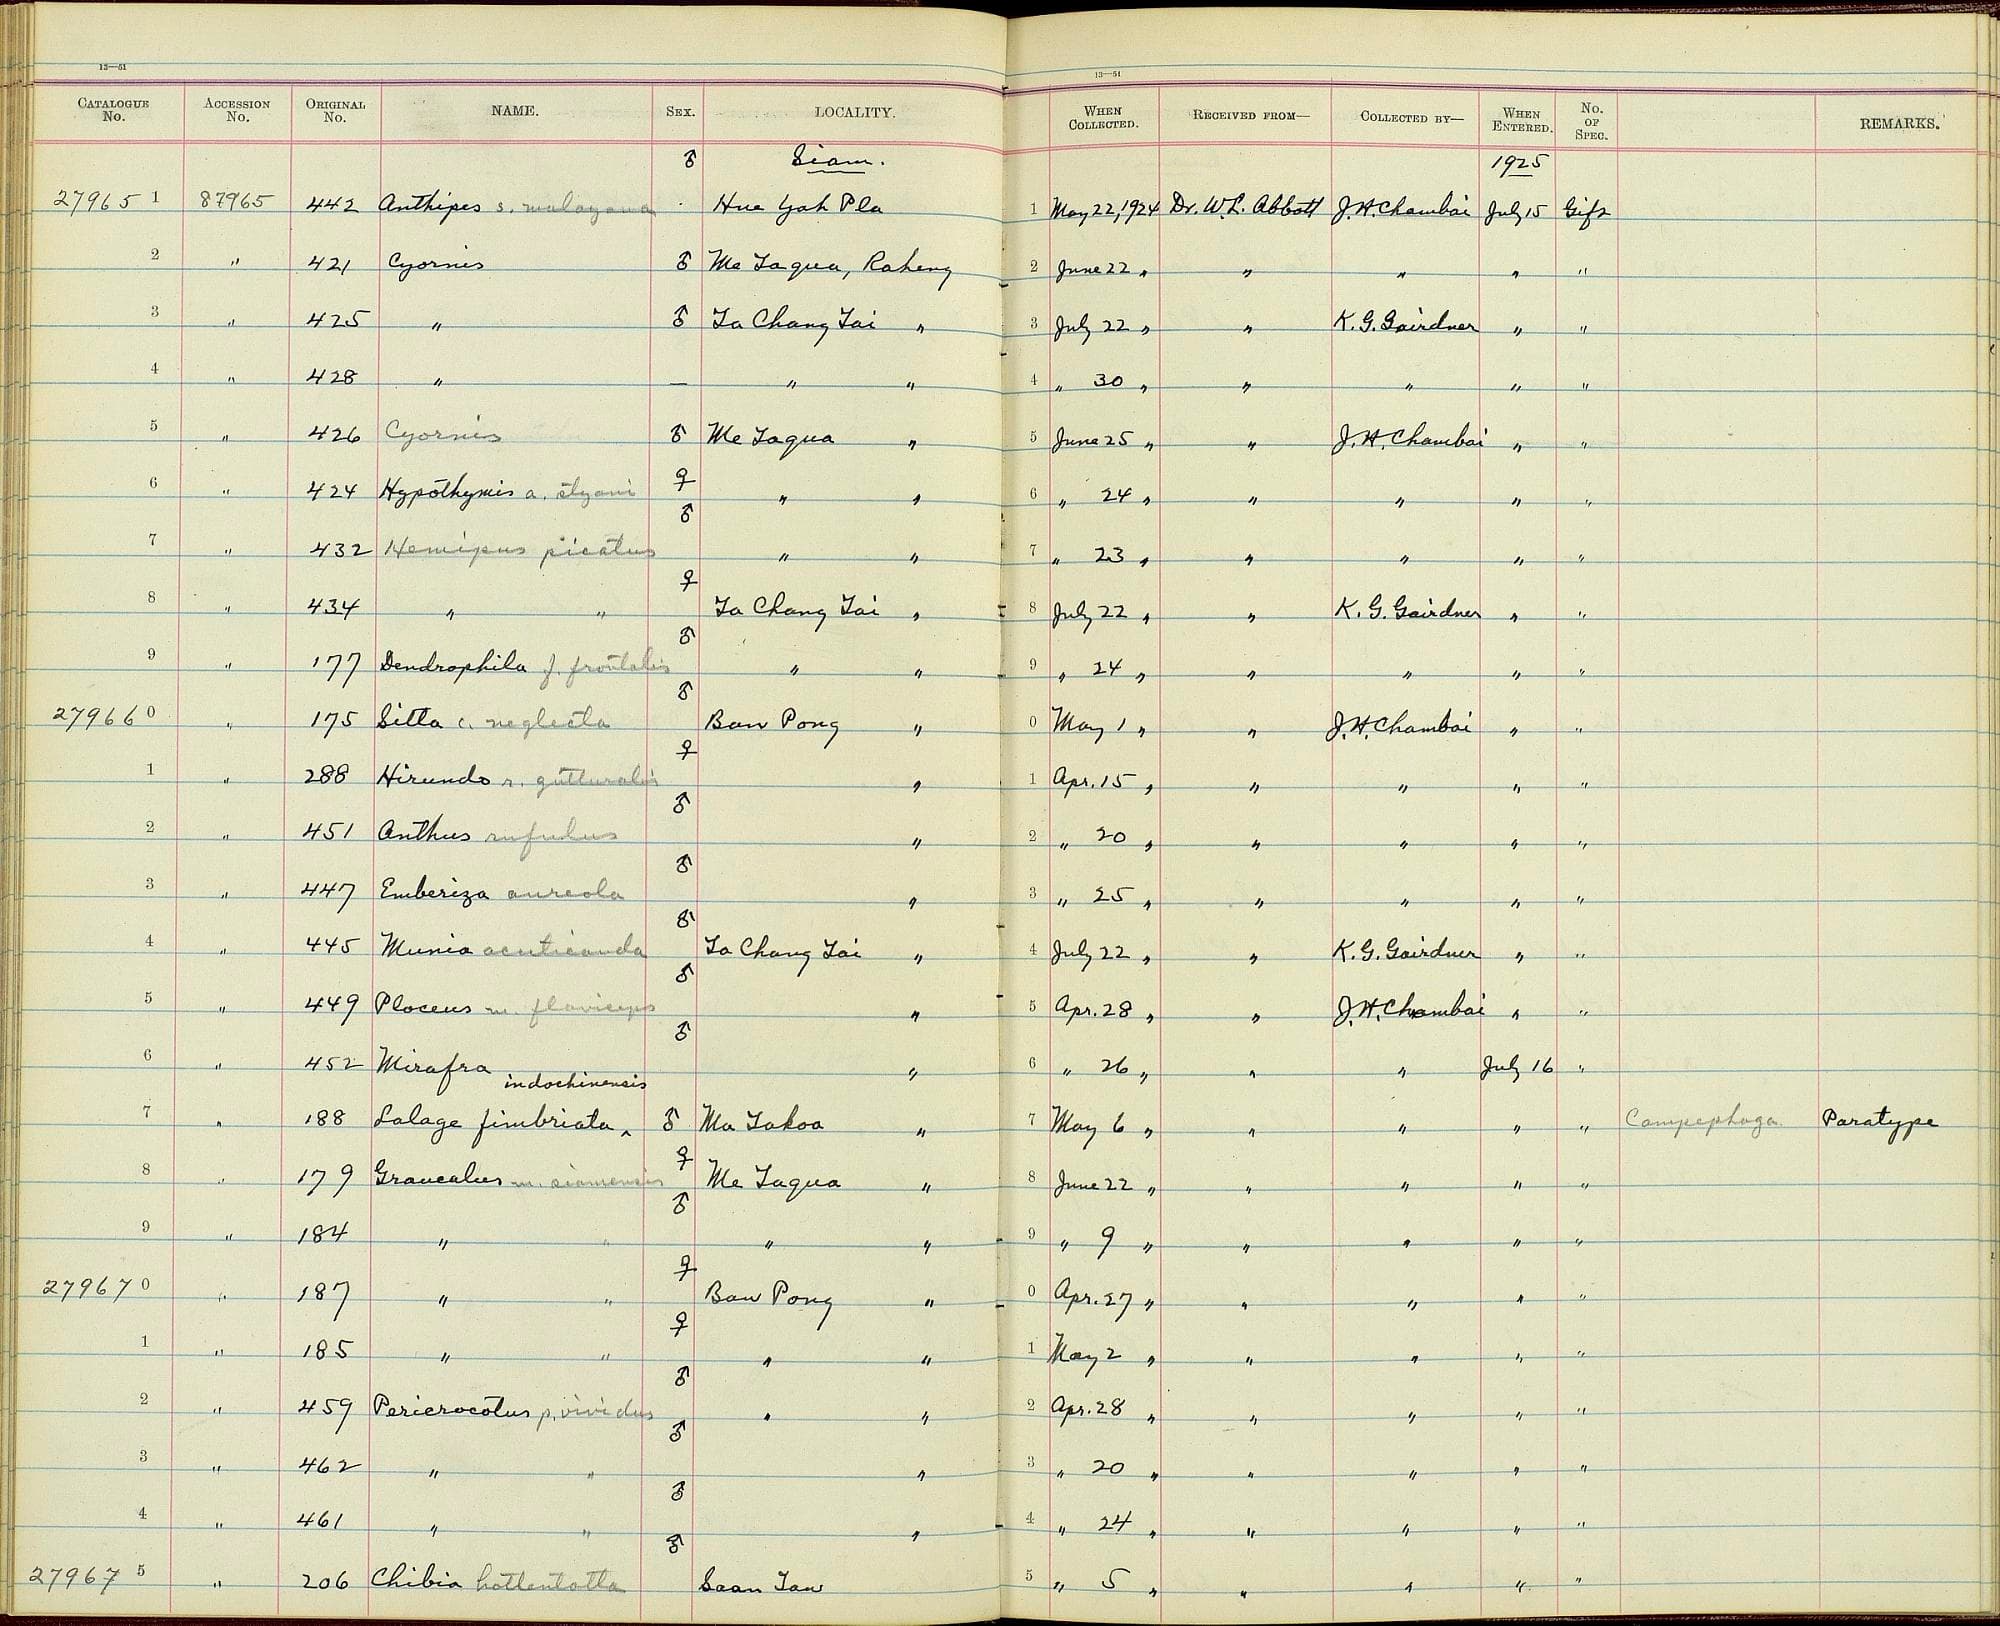 13—51 13—51
CATALOGUE No. ACCESSION No. ORIGINAL No. NAME. SEX. LOCALITY. WHEN COLLECTED. RECEIVED FROM— COLLECTED BY— WHEN ENTERED. No. OF SPEC. REMARKS.
♂ Siam. 1925
27965 1 87965 442 Anthipes s. malayana Hue Yah Pla 1 May 22, 1924 Dr. W. L. Abbott J. H. Chambai July 15 Gift
2 " 421 Cyornis ♂ Me Taqua, Raheng 2 June 22 " " " " "
3 " 425 " ♂ Ta Chang Tai " 3 July 22 " " K. G. Gairdner " "
4 " 428 " — " " 4 " 30 " " " " "
5 " 426 Cyornis ♂ Me Taqua " 5 June 25 " " J. H. Chambai " "
6 " 424 Hypothymis a. styani ♀ " " 6 " 24 " " " " "
7 " 432 Hemipus picatus ♂ " " 7 " 23 " " " " "
8 " 434 " " ♀ Ta Chang Tai " 8 July 22 " " K. G. Gairdner " "
9 " 177 Dendrophila f. frontalis ♂ " " 9 " 24 " " " " "
27966 0 " 175 Sitta c. neglecta ♂ Ban Pong " 0 May 1 " " J. H. Chambai " "
1 " 288 Hirundo r. gutturalis ♀ " 1 Apr. 15 " " " " "
2 " 451 Anthus rufulus ♂ " 2 " 20 " " " " "
3 " 447 Emberiza aureola ♂ " 3 " 25 " " " " "
4 " 445 Munia acuticauda ♂ Ta Chang Tai " 4 July 22 " " K. G. Gairdner " "
5 " 449 Ploceus m. flaviceps ♂ " 5 Apr. 28 " " J. H. Chambai " "
6 " 452 Mirafra ♂ " 6 " 26 " " " July 16 "
indochinensis
7 " 188 Lalage fimbriata ‸ ♂ Ma Takoa " 7 May 6 " " " " " Campephaga Paratype
8 " 179 Graucalus m. siamensis ♀ Me Taqua " 8 June 22 " " " " "
9 " 184 " " ♂ " " 9 " 9 " " " " "
27967 0 " 187 " " ♀ Ban Pong " 0 Apr. 27 " " " " "
1 " 185 " " ♀ " " 1 May 2 " " " " "
2 " 459 Pericrocotus p. vividus ♂ " " 2 Apr. 28 " " " " "
3 " 462 " " ♂ " 3 " 20 " " " " "
4 " 461 " " ♂ " 4 " 24 " " " " "
27967 5 " 206 Chibia hottentotta ♂ Saan Taw 5 " 5 " " " " "